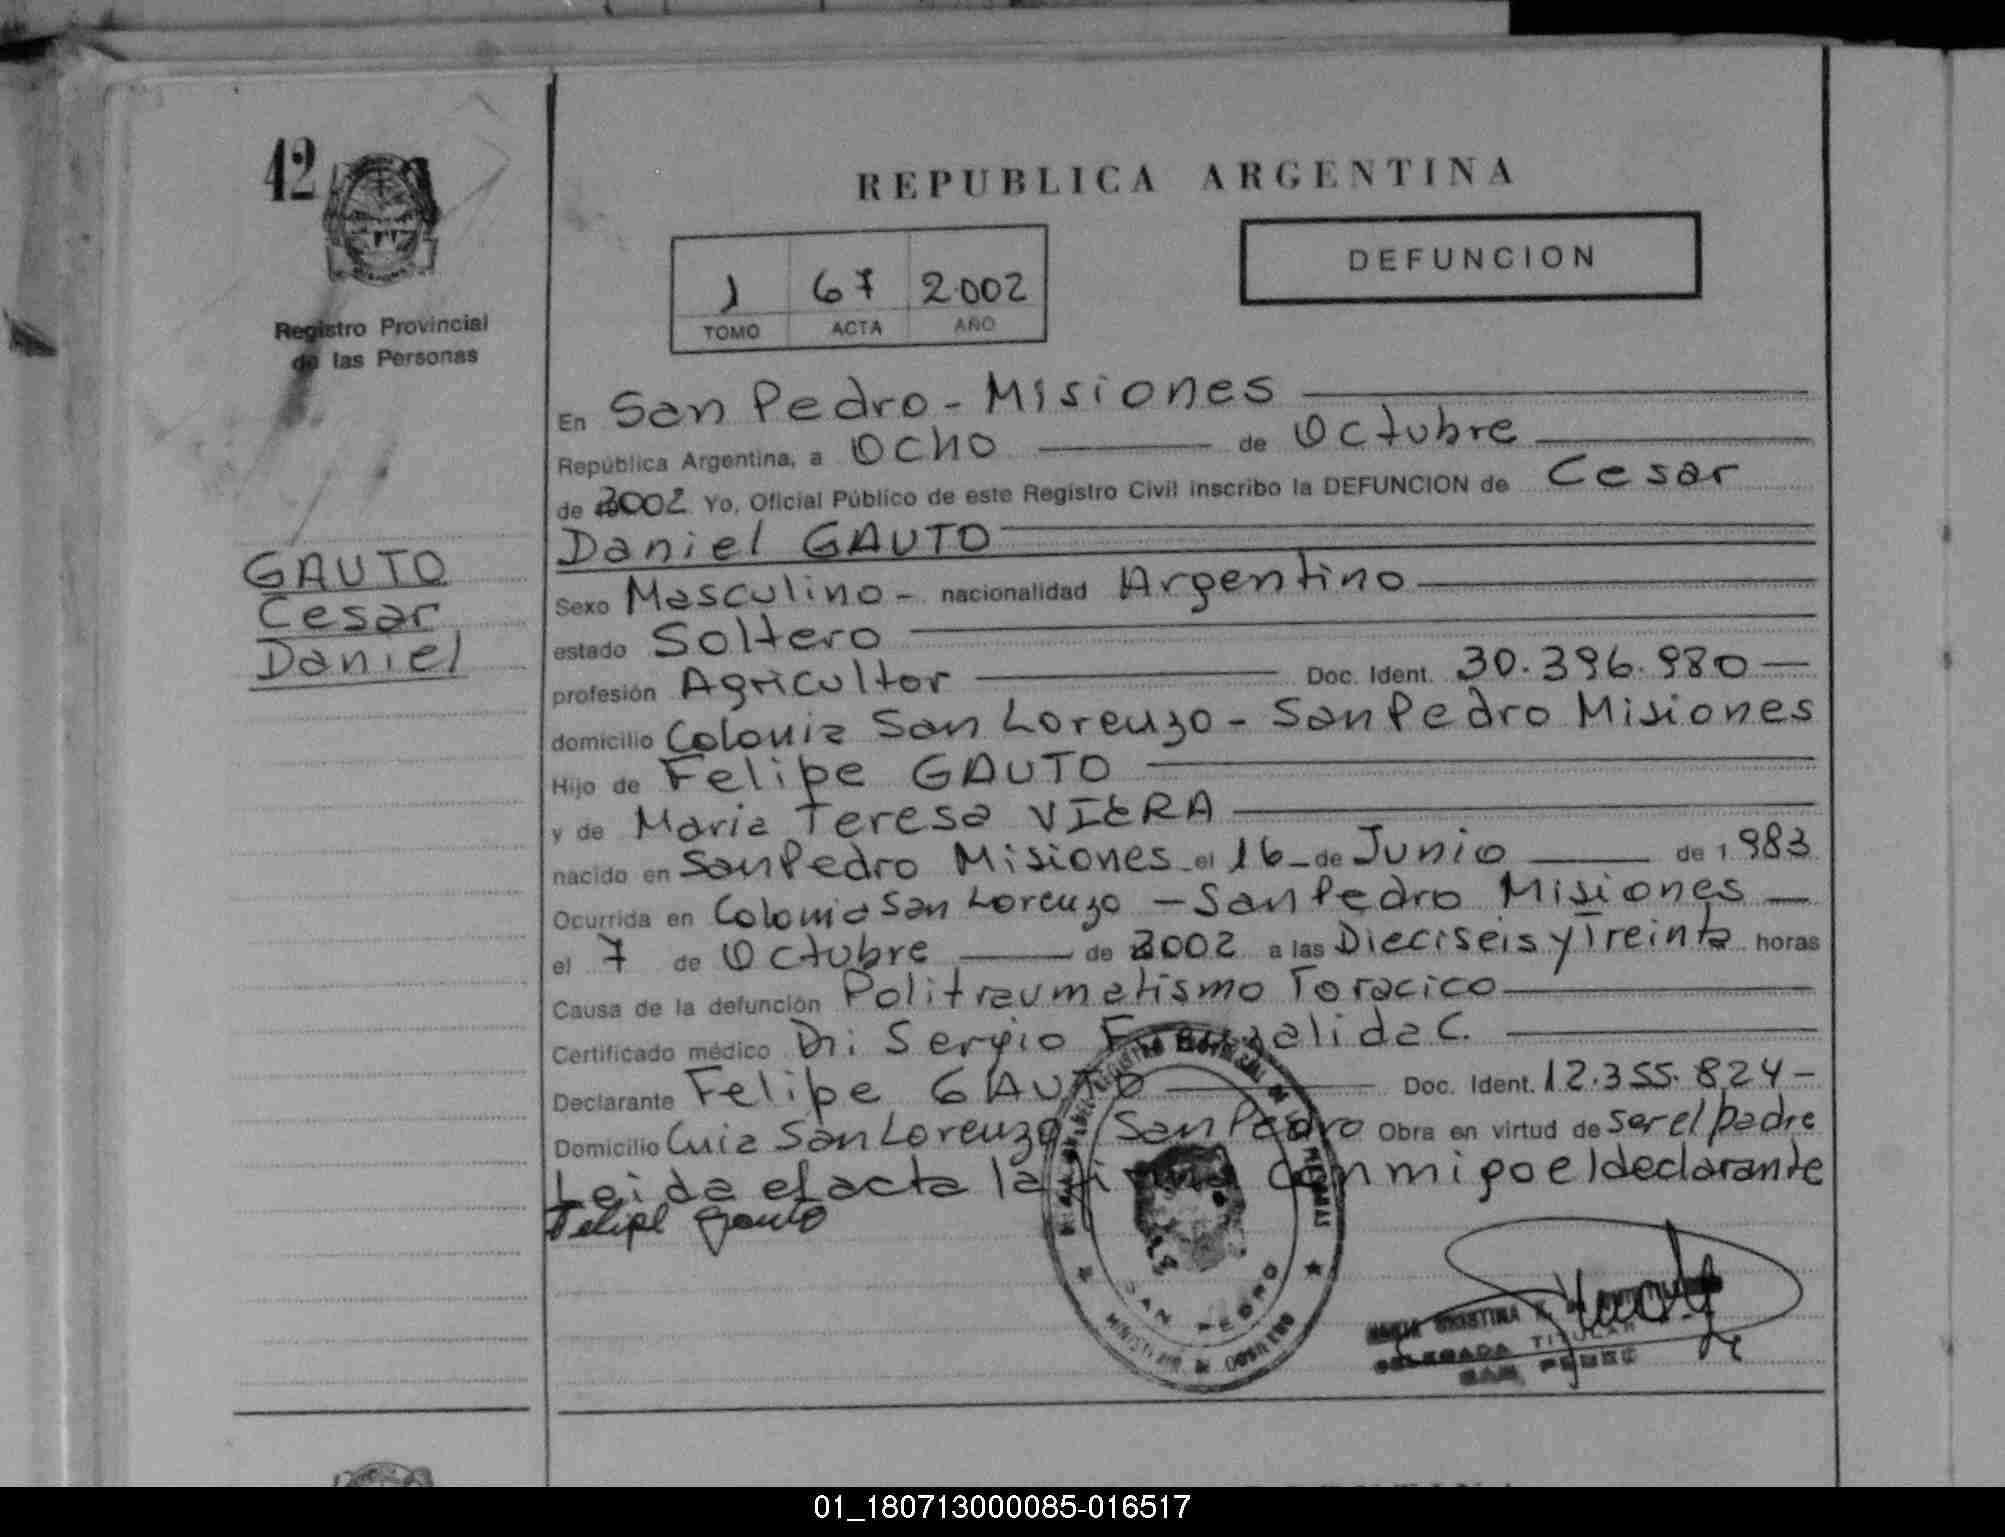 42
REPUBLICA ARGENTINA
DEFUNCION
1 67 2.002
TOMO ACTA AÑO
Registro Provincial
de las Personas
GAUTO
Cesar
Daniel
En San Pedro - Misiones
República Argentina, a Ocho de Octubre
de 2002 Yo, Oficial Público de este Registro Civil inscribo la DEFUNCION de Cesar
Daniel GAUTO
Sexo Masculino - nacionalidad Argentino
estado Soltero
profesión Agricultor Doc. Ident. 30.396.980
domicilio Colonia San Lorenzo - San Pedro Misiones
Hijo de Felipe GAUTO
y de Maria Teresa VIERA
nacido en San Pedro Misiones el 16 de Junio de 1.983
Ocurrida en Colonia San Lorenzo - San Pedro Misiones
el 7 de Octubre de 2002 a las Dieciseis y treinta horas
Causa de la defunción Politraumatismo Toracico
Certificado médico Dr: Sergio C.
Declarante Felipe GAUTO Doc. Ident. 12.355.824-
Domicilio San Lorenzo San Pedro Obra en virtud de ser el padre
Leida el acta la firma conmigo el declarante
Felipe Gauto
REGISTRO PROVINCIAL DE LAS PERSONAS
SAN PEDRO
MINISTERIO DE GOBIERNO
MARIA CRISTINA
DELEGADA TITULAR
SAN PEDRO
01_180713000085-016517